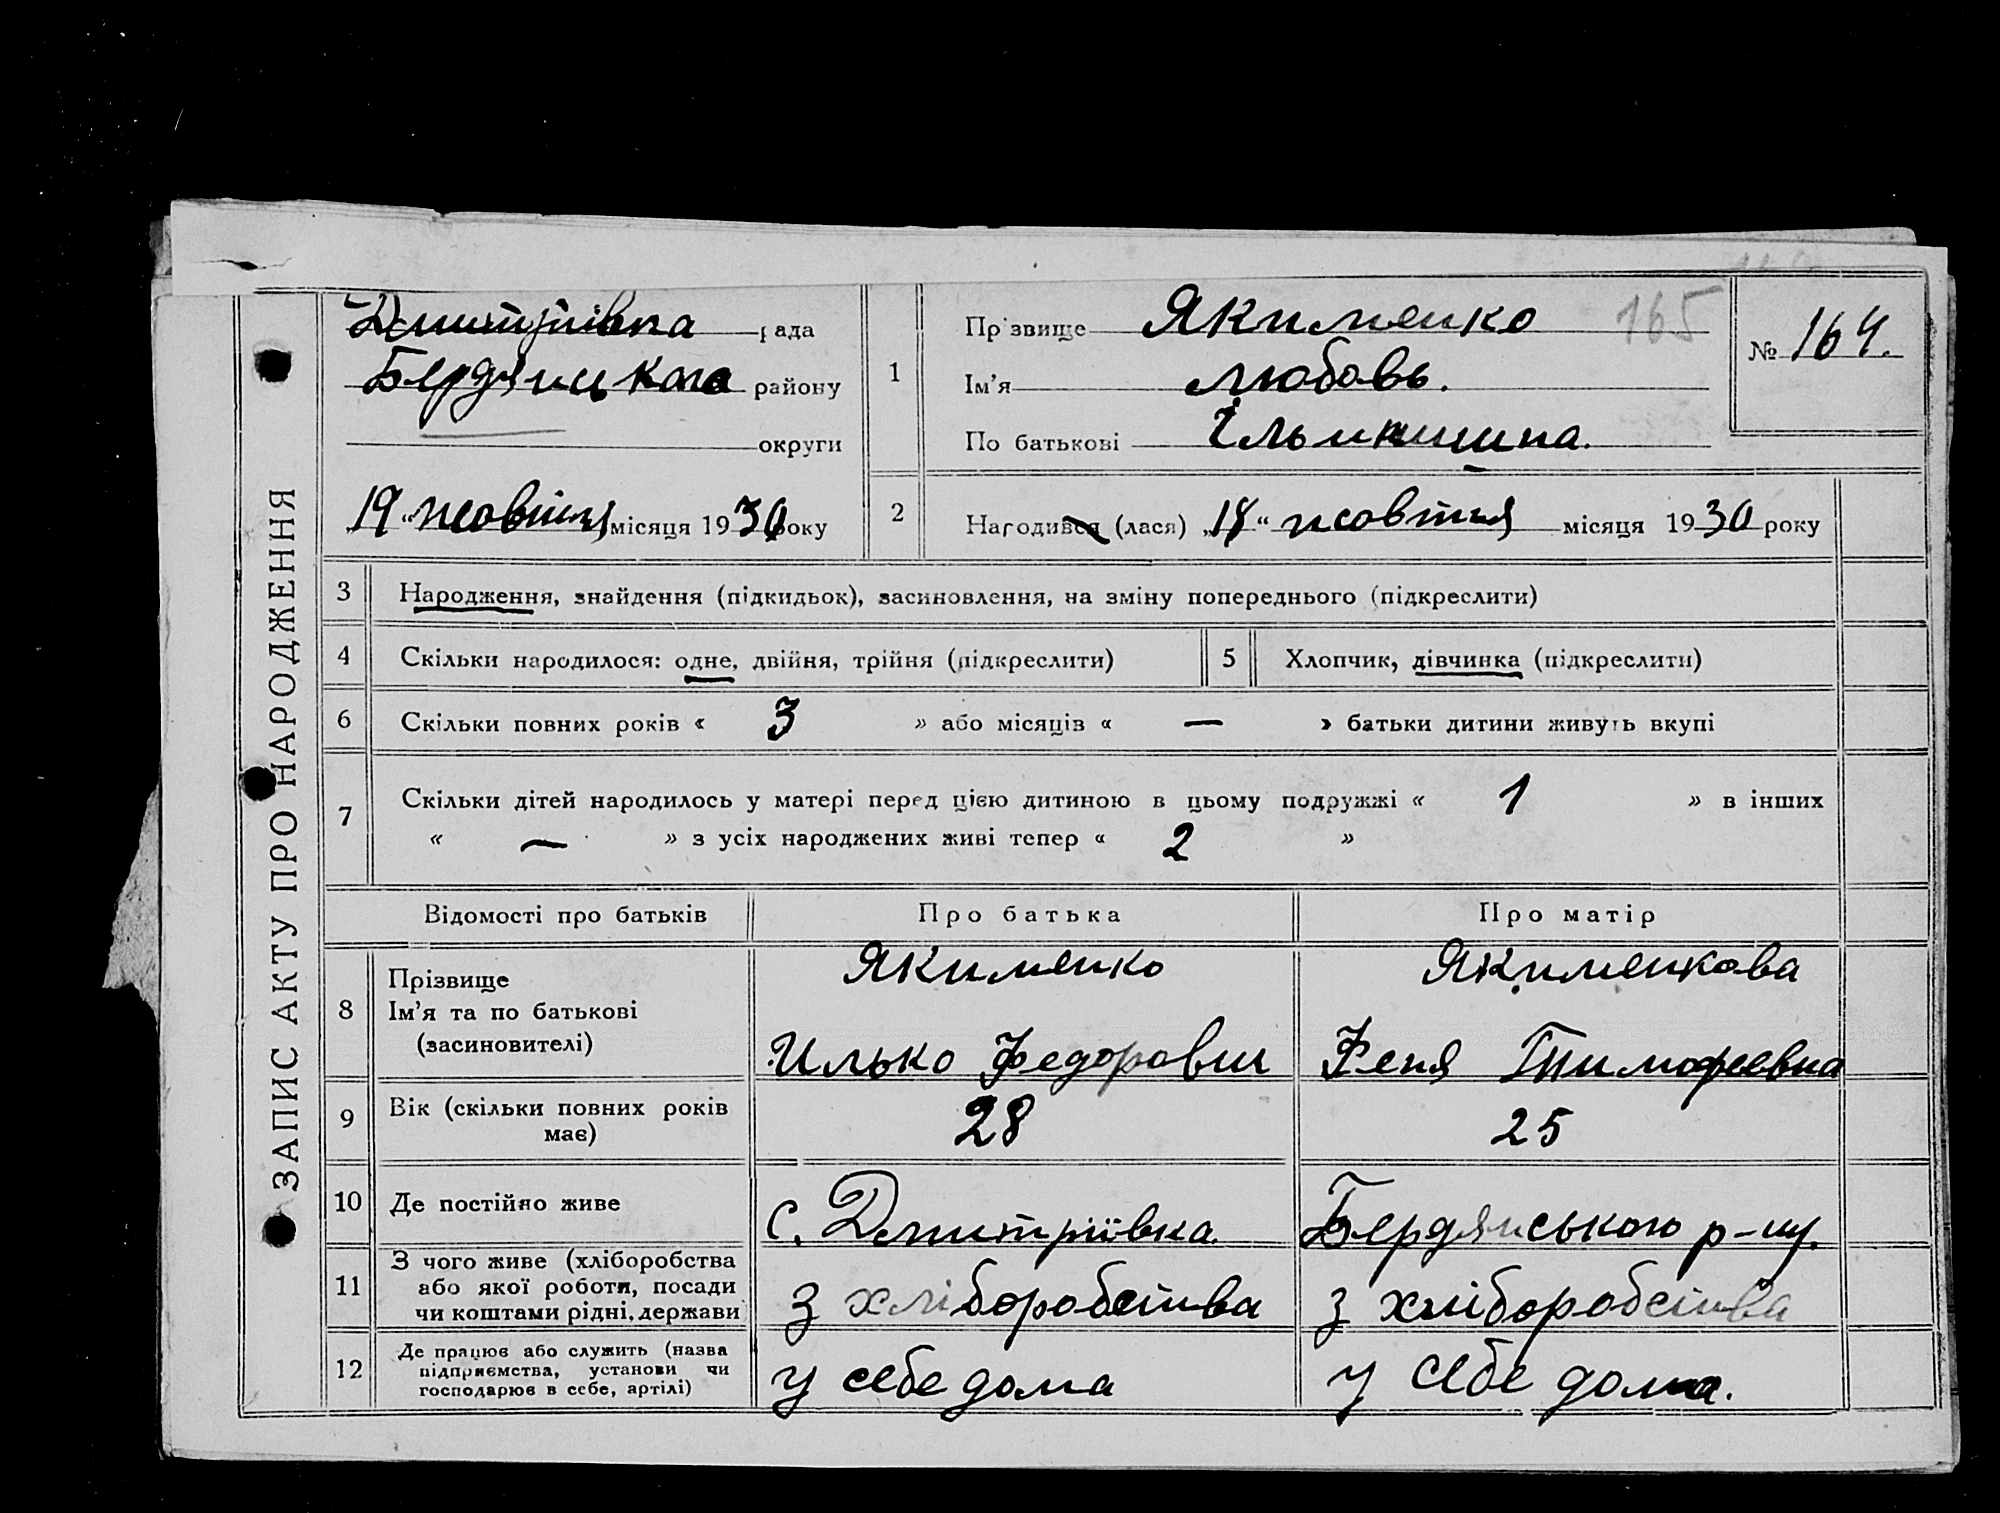 ЗАПИС АКТУ ПРО НАРОДЖЕННЯ
Дмитрівка рада
Бердянського району
округи
„19“ жовтня місяця 1930 року
1
Прізвище Якименко 165
Ім'я Любовь.
По батькові
№ 164.
2
Народився (лася) „18“ жовтня місяця 1930 року
3 Народження, знайдення (підкидьок), засиновлення, на зміну попереднього (підкреслити)
4 Скільки народилося: одне, двійня, трійня (підкреслити) 5 Хлопчик, дівчинка (підкреслити)
6 Скільки повних років « 3 » або місяців « — » батьки дитини живуть вкупі
7 Скільки дітей народилось у матері перед цією дитиною в цьому подружжі « 1 » в інших
« — » з усіх народжених живі тепер « 2 »
Відомості про батьків Про батька Про матір
8 Прізвище Якименко Якименкова
Ім'я та по батькові
(засиновителі) Илько Федорович Феня Тимофеевна
9 Вік (скільки повних років
має) 28 25
10 Де постійно живе с. Дмитріївка. Бердянського р-ну.
11 З чого живе (хліборобства
або якої роботи, посади
чи коштами рідні, держави з хліборобства з хліборобства
12 Де працює або служить (назва
підприємства, установи чи
господарює в себе, артілі) у себе дома у себе дома.